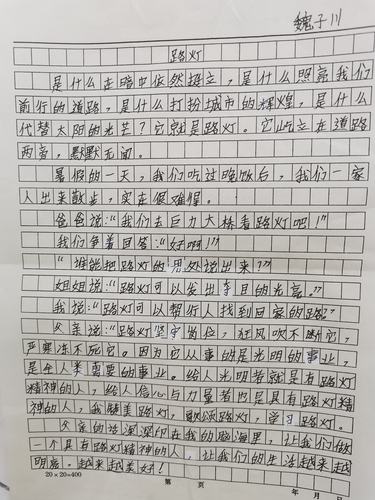 魏子川
路灯
是什么在暗中依然挺立，是什么照亮我们
前行的道路，是什么打扮城市的辉煌，是什么
代替太阳的光芒？它就是路灯。它屹立在道路
两旁，默默无闻。
暑假的一天，我们吃过晚饭后，我们一家
人出来散步，实在很难得。
爸爸说：“我们去巨力大桥看路灯吧！”
我们争着回答：“好啊！”
“谁能把路灯的用处说出来？”
姐姐说：“路灯可以发出夺目的光亮。”
我说：“路灯可以帮行人找到回家的路”
父亲说：“路灯坚守岗位，狂风吹不断它，
严寒冻不死它。因为它从事的是光明的事业，
是全人类需要的事业。给人光明者就是有路灯
精神的人，给人信心与力量者也是具有路灯精
神的人，我赞美路灯，歌颂路灯，学习路灯。
父亲的话深深印在我的脑海里，让我们做
一个具有路灯精神的人，让我们的生活越来越
明亮。越来越美好！
20×20=400
第 页
年 月 日